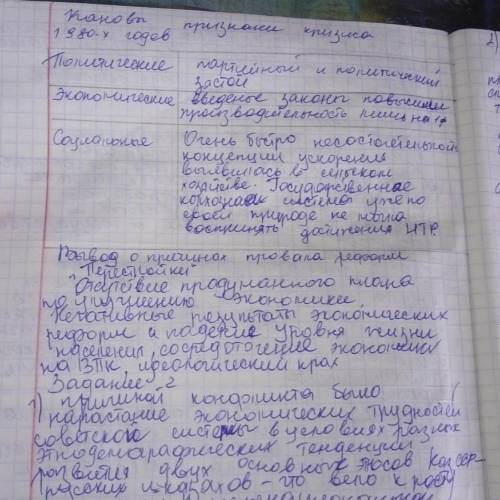 Каковы признаки кризиса
1980-х годов
Политические партийный и политический
застой
Экономические введеные законы повысили
производительность лишь на 1%
Социальные Очень быстро несостоятельность
концепции ускорения
выявилась в сельском
хозяйстве. Государственное
колхозная система уже по
своей природе не могла
воспринять достижения НТР.
Вывод о причинах провала реформ
"Перестройки"
Отсутствие продуманного плана
по улучшению экономики
Негативные результаты экономических
реформ и падение уровня жизни
населения, сосредоточение экономики
на ВПК, идеологический крах
Задание 2
1) причиной конфликта было
нарастание экономических трудностей
советской системы в условиях разных
этнодемографических тенденций
развития двух основных
русских и казахов - что вело к росту
2)